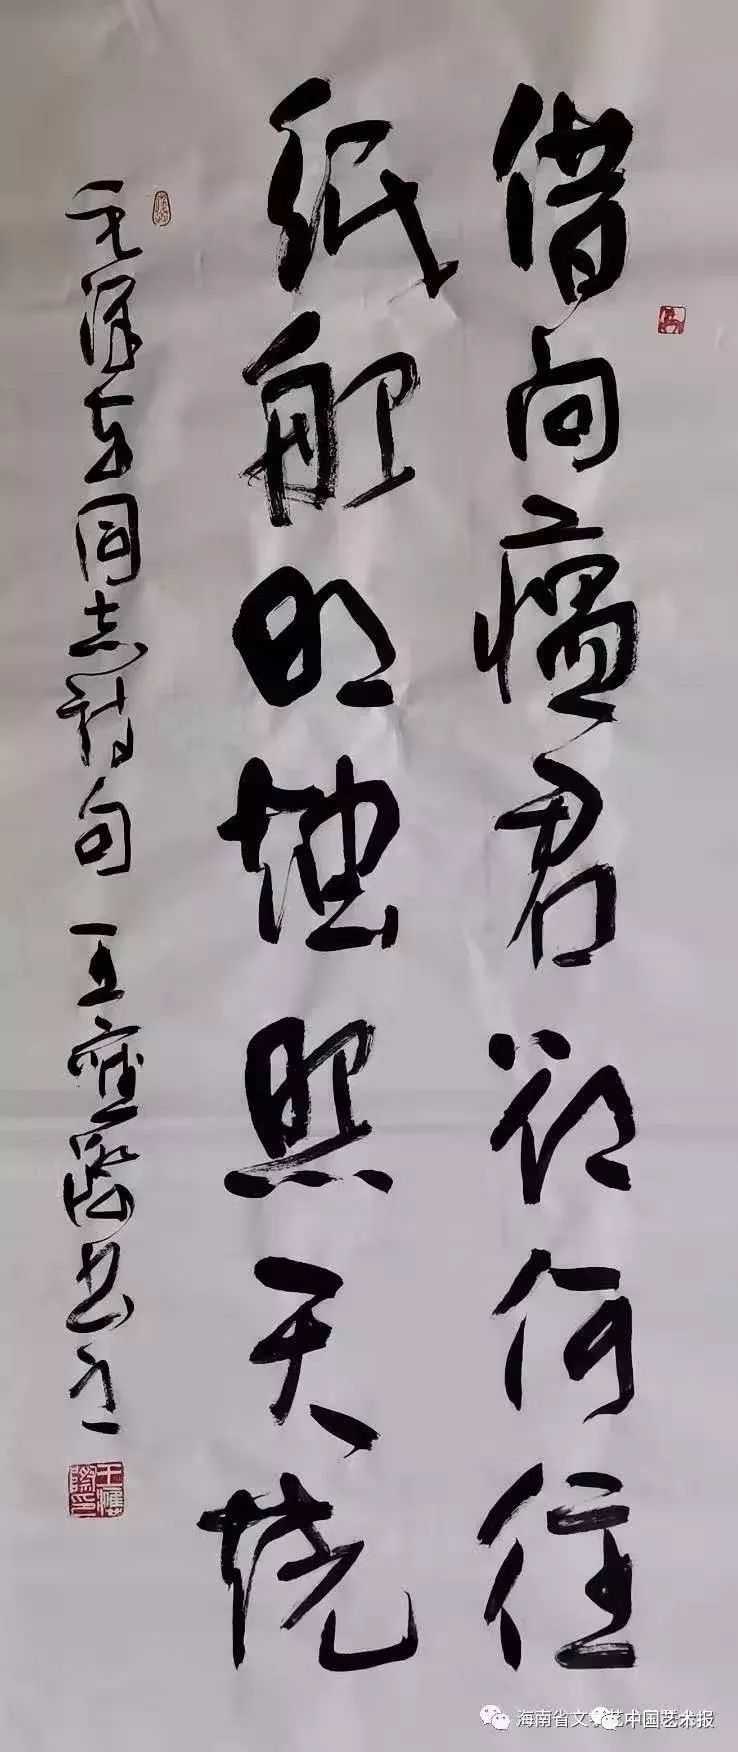 借问瘟君欲何往
纸船明烛照天烧
毛泽东同志诗句 王應際书
王應際印
海南省文 中国艺术报